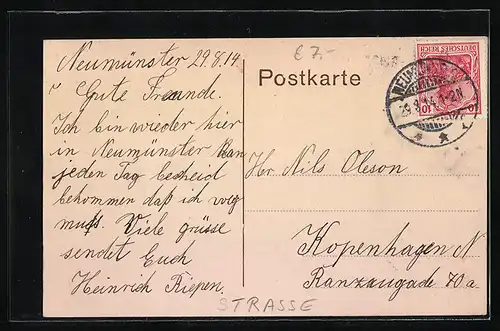 Neumünster 29.8.14
£ 7.-
Gute Freunde.
Ich bin wieder hier
in Neumünster Kan
jeden Tag bescheid
bekommen daß ich weg
muß. Viele grüsse
sendet Euch
Heinrich Riepen.
Postkarte
DEUTSCHES REICH
10 10
29.8.14. 1-2N
Hr. Nils Oleson
Kopenhagen N
Ranzausgade 70a
STRASSE